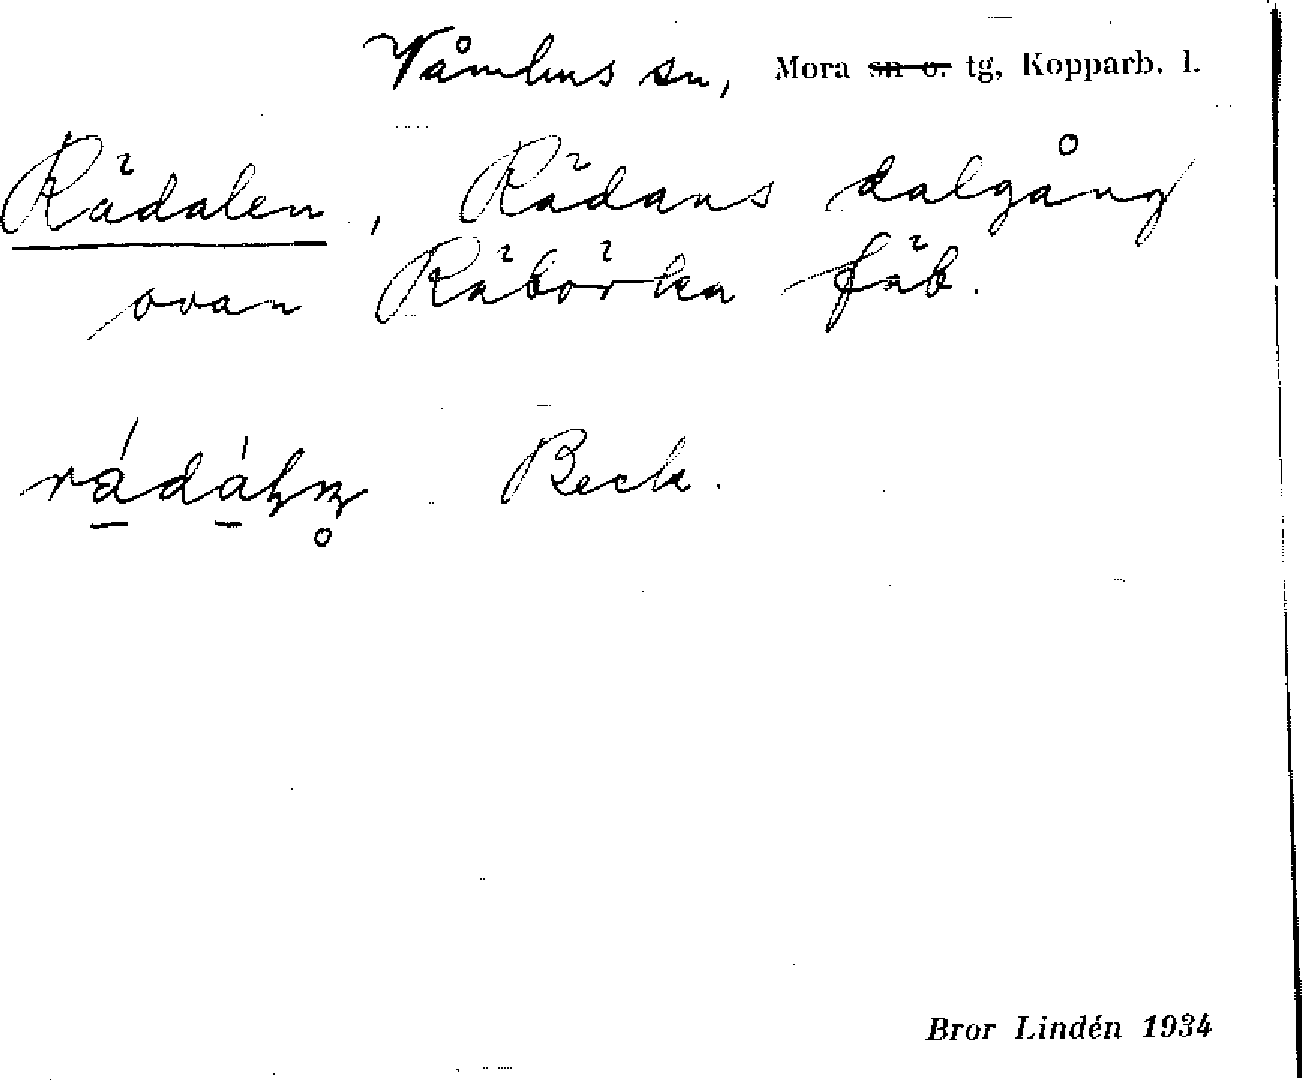 Våmhus sn, Mora ~~sn o.~~ tg, Kopparb. l.
Rädalen, Rädans dalgång
ovan Räbörka fäb.
Beck.
Bror Lindén 1934